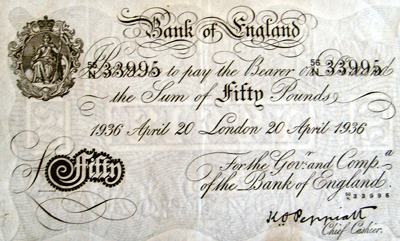 Bank of England
56/N 33995 to pay the Bearer on 56/N 33995
the Sum of Fifty Pounds
1936 April 20 London 20 April 1936
For the Govr. and Compa.
Fifty
of the Bank of England.
56/N 33995
K.O. Peppiatt
Chief Cashier.